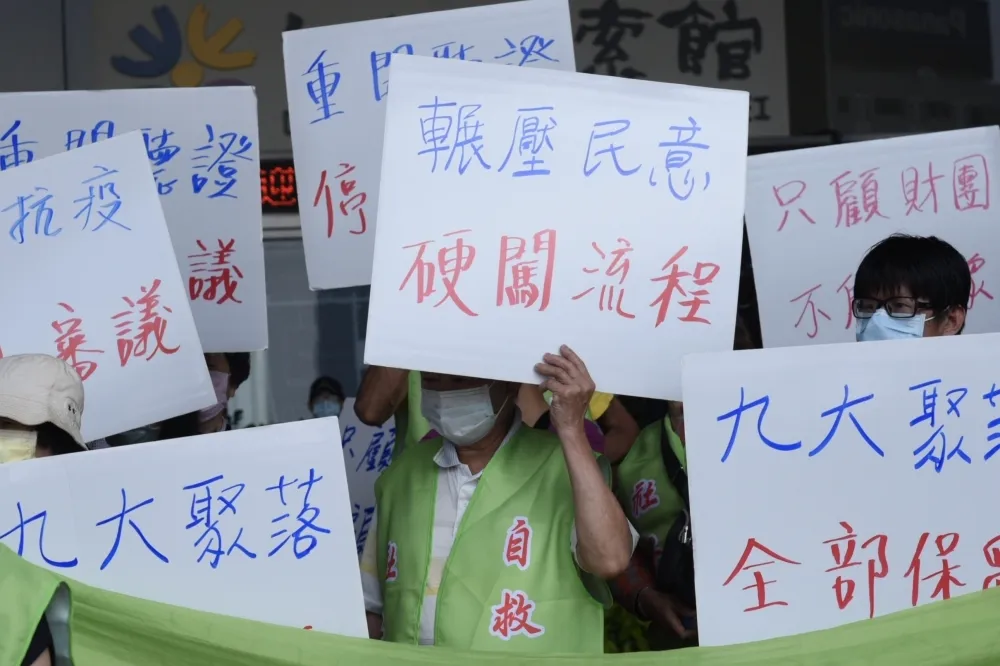 索館
Panasonic
重開聽證
停
重開聽證
議
抗疫
審議
輾壓民意
硬闖流程
只顧財團
不顧
眾
九大聚落
只顧
九大聚落
全部保
社
自
救
社